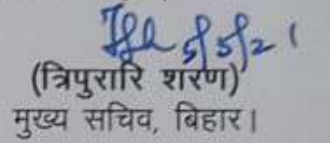 5/5/21
(त्रिपुरारि शरण)
मुख्य सचिव, बिहार।